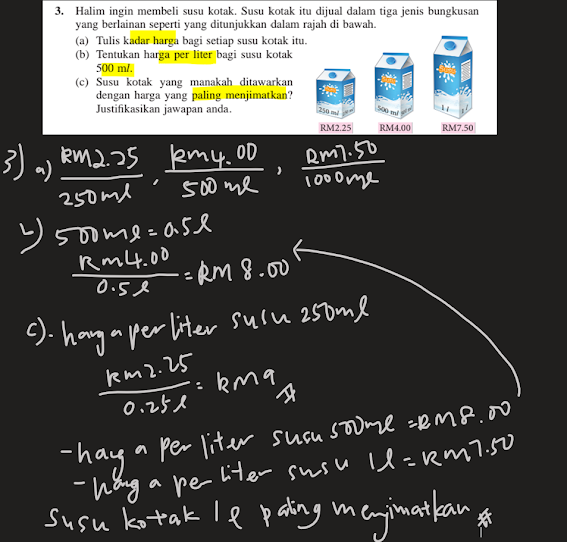 3. Halim ingin membeli susu kotak. Susu kotak itu dijual dalam tiga jenis bungkusan
yang berlainan seperti yang ditunjukkan dalam rajah di bawah.
(a) Tulis kadar harga bagi setiap susu kotak itu.
(b) Tentukan harga per liter bagi susu kotak
500 ml.
(c) Susu kotak yang manakah ditawarkan
dengan harga yang paling menjimatkan?
Justifikasikan jawapan anda.
250 ml
500 ml
1 l
RM2.25 RM4.00 RM7.50
3) a) RM2.25/250ml , RM4.00/500ml , RM7.50/1000ml
b) 500ml = 0.5l
RM4.00/0.5l = RM 8.00
c). harga per liter susu 250ml
RM2.25/0.25l = RM9
- harga per liter susu 500ml = RM8.00
- harga per liter susu 1l = RM7.50
Susu kotak 1l paling menjimatkan #